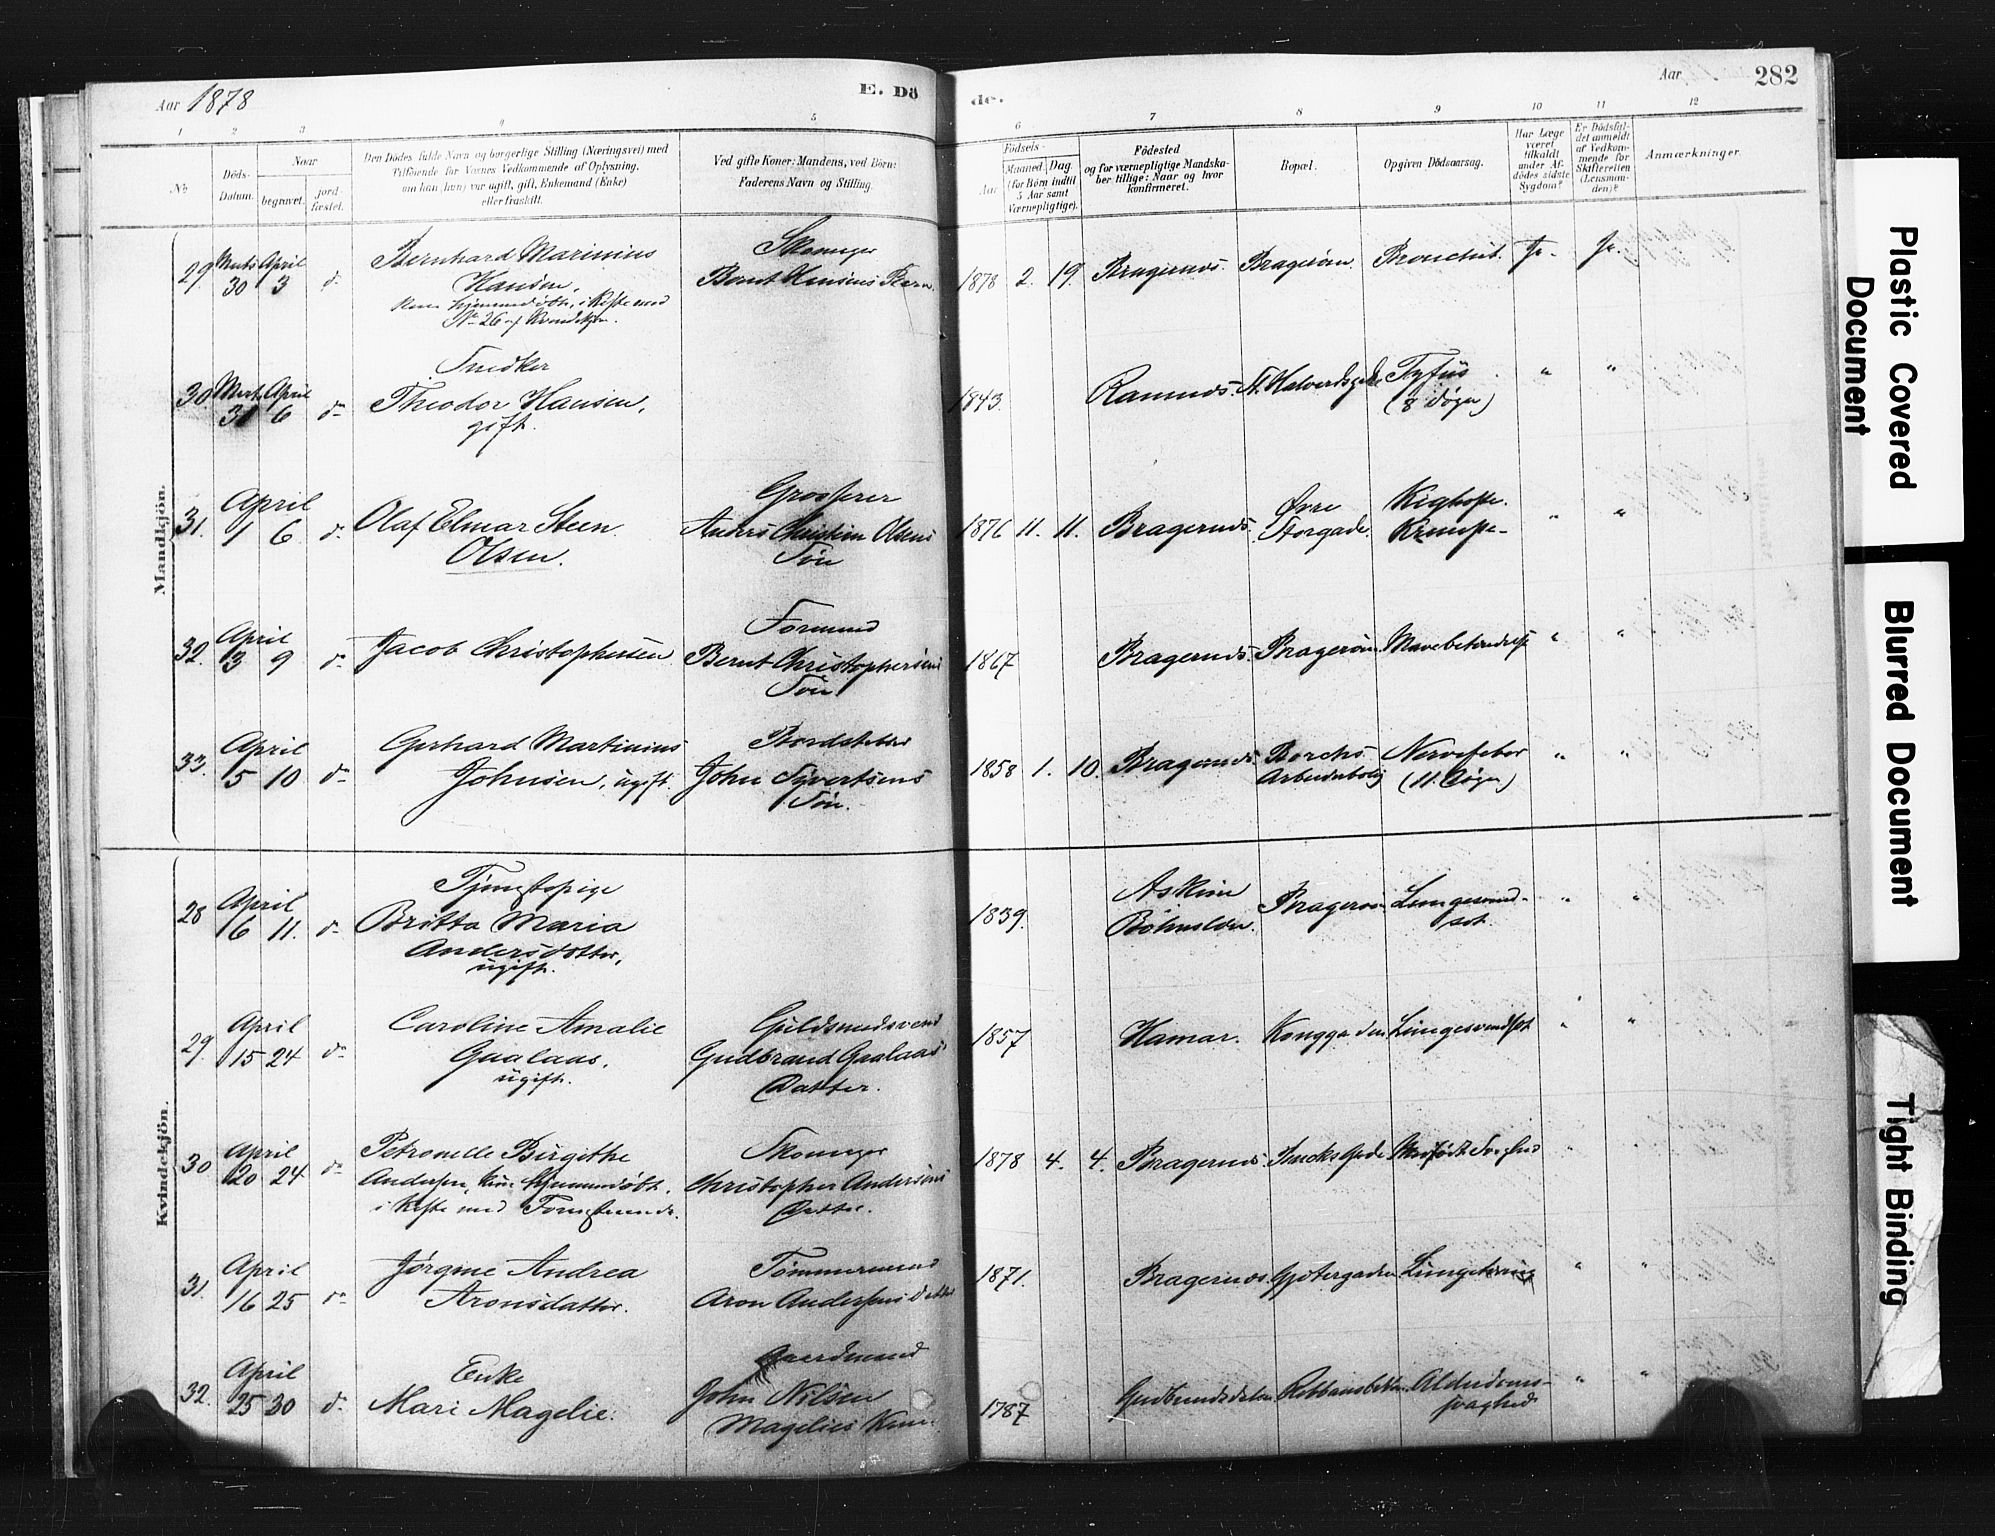 Aar 1878
E. Dö
de.
Aar
282
1 2 3 4 5 6 7 8 9 10 11 12
No
Döds-Datum.
Naar
begravet.
jord-fæstet.
Den Dödes fulde Navn og borgerlige Stilling (Næringsvei) med
Tilföiende for Voxnes Vedkommende af Oplysning,
om han (hun) var ugift, gift, Enkemand (Enke)
eller fraskilt.
Ved gifte Koner: Mandens, ved Börn:
Faderens Navn og Stilling.
Födsels-
Aar
Maaned. Dag.
(for Börn indtil
5 Aar samt
Værnepligtige).
Födested
og for værnepligtige Mandska-
ber tillige: Naar og hvor
konfirmeret.
Bopæl.
Opgiven Dödsaarsag.
Har Læge
været
tilkaldt
under Af-
dödes sidste
Sygdom?
Er Dödsfal-
det anmeldt
af Vedkom-
mende for
Skifteretten
(Lensman-
den)?
Anmærkninger.
Mandkjön.
29. Marts 30 April 3 do
Bernhard Marinius
Hansen,
hjemmedøbt, i Kiste med
No 26 af Kvindekjøn.
Skomager
Bernt Hansens Barn.
1878 2. 19. Bragernæs. Bragerøen. Bronchit. Ja. Ja.
30. Marts 31 April 6 do
Snedker
Theodor Hansen,
gift.
1843. Ramnæs. St. Halvardsgade Tyfus
(8 Døgn) " "
31. April 1 6 do
Olaf Elmar Steen
Olsen.
Grosserer
Anders Christian Olsens
Søn
1876 11. 11. Bragernæs. Øvre
Storgade. Kighoste.
Krampe. " "
32. April 3 9 do
Jacob Christophersen
Formand
Bernt Christophersens
Søn
1867 Bragernæs. Bragerøen. Mavebetændelse " "
33. April 5 10 do
Gerhard Martinius
Johnsen, ugift.
Bordstabler
John Syvertsens
Søn.
1858 1. 10. Bragernæs. Borchs
Arbeiderbolig Nervefeber
(11 Døgn) " "
Kvindekjön.
28 April 6 11. do
Tjenestepige
Britta Maria
Andersdotter,
ugift.
1839. Askim
Bohuslän. Bragerøen Lungesvind-
sot. " "
29. April 15 24 do
Caroline Amalie
Gaalaas,
ugift.
Guldsmedsvend
Gudbrand Gaalaas'
Datter.
1857 Hamar. Konggaden Lungesvindsot " "
30 April 20 24 do
Petronelle Birgithe
Andersen, kun hjemmedøbt,
i Kiste med Foregaaende.
Skomager
Christopher Andersens
Datter.
1878 4. 4. Bragernæs. Smedsgade Medfødt Svaghed " "
31. April 16 25 do
Jørgine Andrea
Aronsdatter.
Tømmermand
Aron Andersens Datter
1871. Bragernæs Gjetergaden Lungetæring " "
32. April 25 30 do
Enke
Mari Magelie.
Gaardmand
John Nilsen
Magelies Kone
1787 Gudbrandsdalen Rebbansbakken Alderdoms-
svaghed " "
Plastic Covered
Document
Blurred Document
Tight Binding